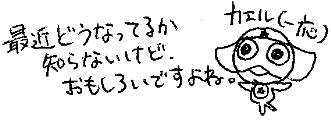 最近どうなってるか
知らないけど、
おもしろいですよね。
カエル(一応)